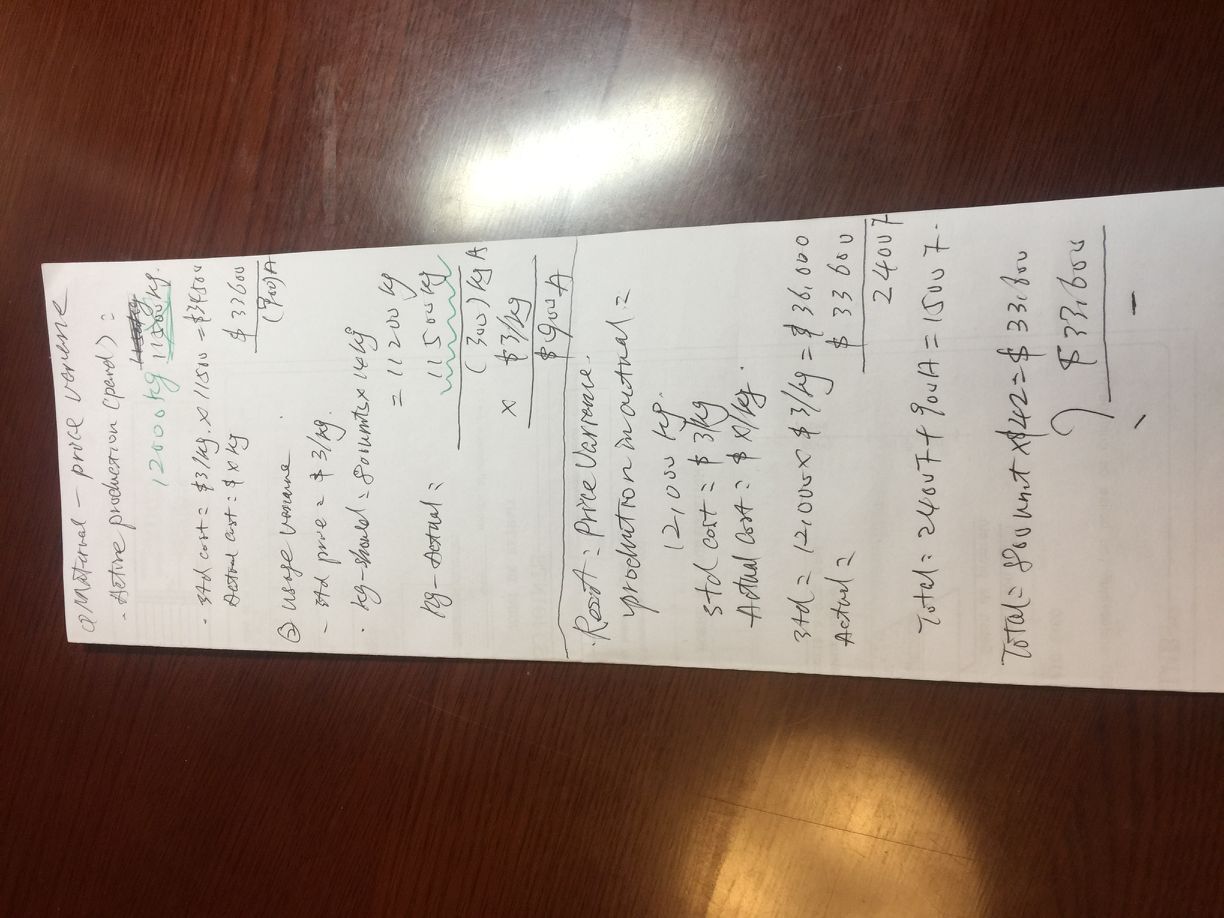 ① Material - price variance
- Active production (paid) :
12000kg 11500kg.
- Std cost = $3/kg. x 11500 = $34500
Actual cost : $ x kg $33600
(900)A
② usage variance.
- std price = $3/kg.
. kg-should = 800units x 14kg
= 11200 kg
kg-Actual = 11500kg
(300) kg A
x $3/kg
$900 A
. = Price Variance.
production in actual =
12,000 kg.
std cost = $3/kg
Actual cost = $ x/kg.
std = 12,000 x $3/kg = $36,000
Actual = $33600
2400F
Total = 2400F + 900A = 1500F.
Total = 800 unit x $42 = $33,600
$33,600
-